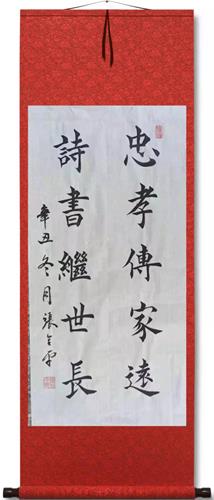 忠孝傳家遠
詩書繼世長
辛丑冬月